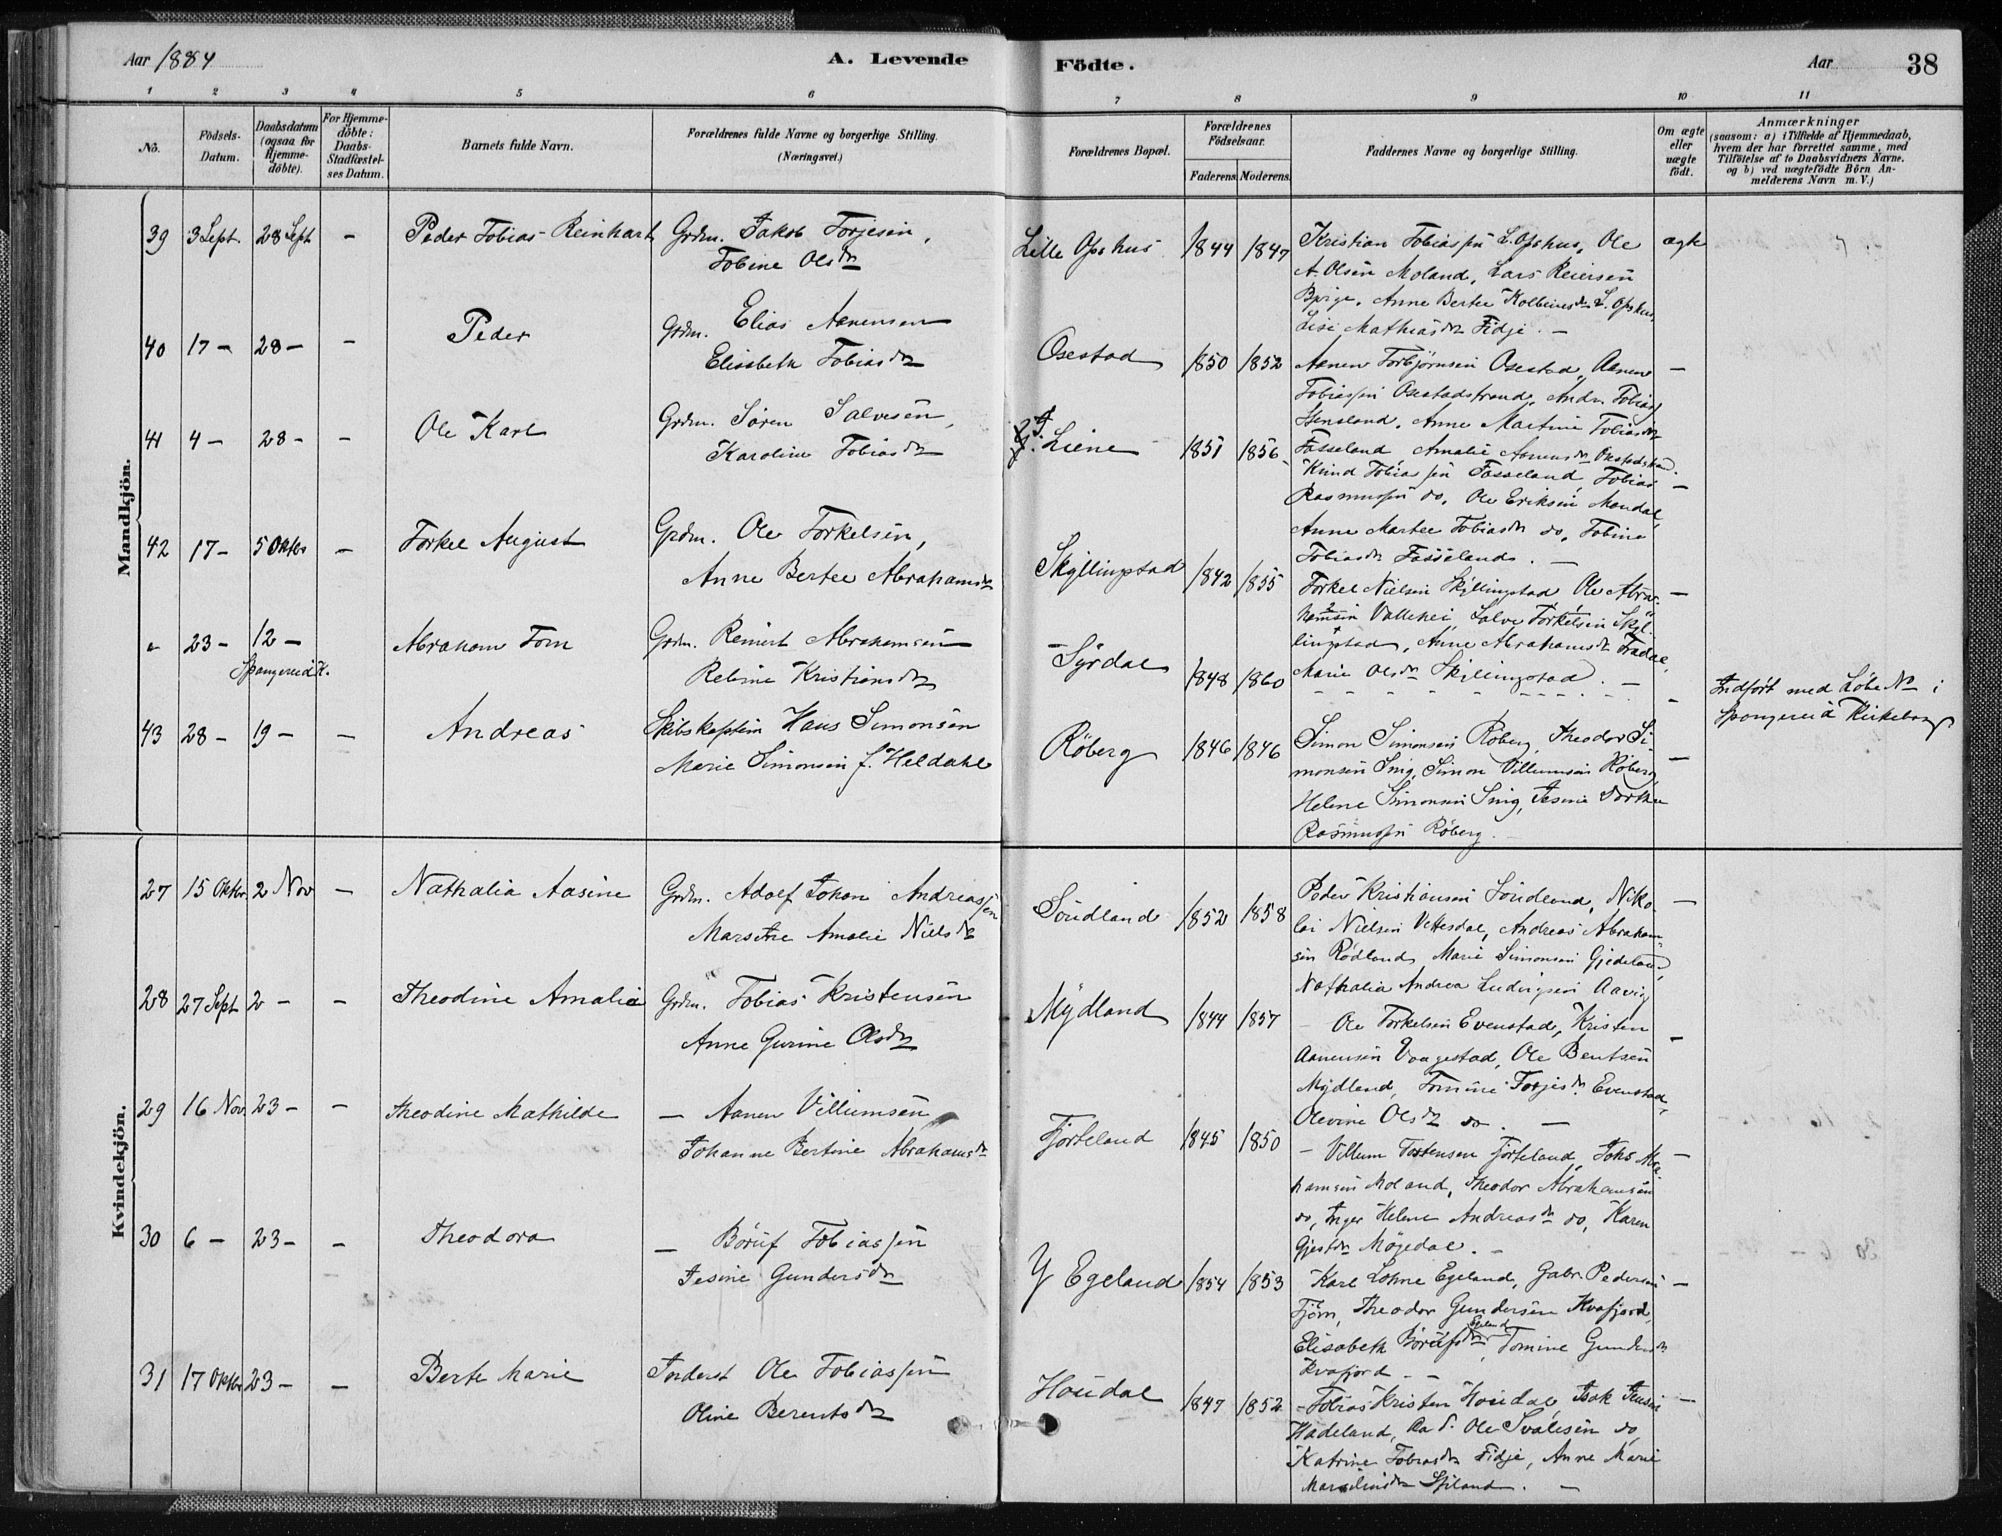 Aar 1884
A. Levende
Födte.
Aar
38
1 2 3 4 5 6 7 8 9 10 11
No.
Födsels-
Datum.
Daabsdatum
(ogsaa for
Hjemme-
döbte).
For Hjemme-
döbte:
Daabs-
Stadfæstel-
ses Datum.
Barnets fulde Navn.
Forældrenes fulde Navne og borgerlige Stilling.
(Næringsvei.)
Forældrenes Bopæl.
Forældrenes
Födselsaar.
Faderens. Moderens.
Faddernes Navne og borgerlige Stilling.
Om ægte
eller
uægte
födt.
Anmærkninger
(saasom: a) i Tilfælde af Hjemmedaab,
hvem der har forrettet samme, med
Tilföielse af to Daabsvidners Navne.
og b) ved uægtefödte Börn An-
melderens Navn m. V.)
Mandkjön.
39 3 Sept. 28 Sept - Peder Tobias Reinhart Grdm. Jakob Torjesen,
Tobine Olsdr
Lille Opshus 1844 1847
Kristian Tobiassen L. Opshus, Ole
A. Olsen Moland, Lars Reiersen
Anne Berte Kolbeinsdr L. Opshus,
Lise Mathiasdr Fidje. -
ægte
40 17 - 28 - - Peder Grdm. Elias Aanensen
Elisabeth Tobiasdr
Osestad 1850 1852
Aanen Torbjörnsen Osestad, Aanen
Tobiassen Osestadstrand, Andr. Tobias
Anne Martine Tobiasdr
Fasseland, Amalie Aanensdr
-
41 4 - 28 - - Ole Karl Grdm. Sören Salvesen,
Karoline Tobiasdr
Liene 1851 1856
Knud Tobiassen Fasseland, Tobias
Rasmussen do, Ole Eriksen Mandal,
Anne Martee Tobiasdr do, Tobine
Tobiasdr Fasseland. -
-
42 17 - 5 Oktbr - Torkel August Grdm. Ole Torkelsen,
Anne Bertee Abrahamsdr
Skyllingstad 1842 1855
Torkel Nielsen Skyllingstad Ole Abra-
hamsen Vallehei, Salve Torkelsen Skyl-
lingstad, Anne Abrahamsdr
Marie Olsdr Skyllingstad. -
-
23 - 12 - Abraham Tom Grdm. Reinert Abrahamsen
Spangereid K. Rebine Kristiansdr
Syrdal 1848 1860
-
Indfört med Löbe No i
Spangereid Kirkebog
43 28 - 19 - - Andreas Skibskaptein Hans Simonsen
Marie Simonsen f. Heldahl
Röberg 1846 1846
Simon Simonsen Röberg, Theodor Si-
monsen Snig, Simon Villumsen Röberg,
Helene Simonsen Snig, Jesine Dorthea
Rasmussen Röberg. -
-
Kvindekjön.
27 15 Oktbr. 2 Nov - Nathalia Aasine Grdm. Adolf Johan Andreassen
Amalie Nielsdr
Söudland 1852 1858
Peder Kristiansen Söudland, Niko-
lai Nielsen Vettesdal, Andreas Abraham-
sen Rödland, Marie Simonsen Gjedeland,
Nathalia Andrea Ludvigsen Aavig
-
28 27 Sept 2 - - Theodine Amalia Grdm. Tobias Kristensen
Anne Gurine Olsdr
Mydland 1844 1857
- Ole Torkelsen Evenstad, Kristen
Aanensen Vaagestad, Ole Bentsen
Mydland, Tomine Torjesdr. Evenstad,
Olevine Olsdr do. -
-
29 16 Nov. 23 - - Theodine Mathilde - Aanen Villumsen
Johanne Bertine Abrahamsdr
Fjörteland 1845 1850
- Villum Tostensen Fjörteland, Johs Abra-
hamsen Moland, Theodor Abrahamsen
do, Inger Helene Andreasdr do, Karen
Gjestdr Möjedal. -
-
30 6 - 23 - - Theodora - Böruf Tobiassen
Jesine Gundersdr
Y Egeland 1854 1853
Karl Lohne Egeland, Gabr. Pedersen
Fjörn, Theodor Gundersen Kvafjord,
Elisabeth Börufsdr Egeland, Tomine Gundersdr
Kvafjord - -
-
31 17 Oktbr 23 - - Berte Marie Inderst Ole Tobiassen
Oline Berentsdr
Houdal 1847 1852
- Tobias Kristen Houdal, Isak Jensen
Hadeland, Ole Svalesen do,
Katrine Tobiasdr Fidje, Anne Marie
-